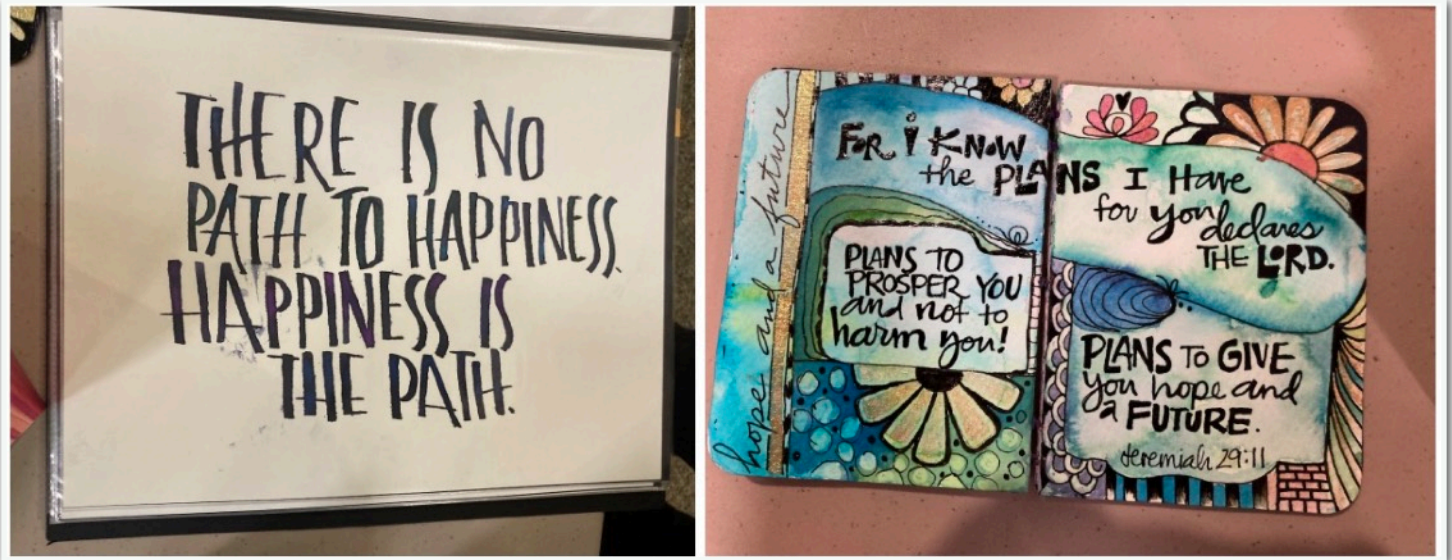 THERE IS NO
PATH TO HAPPINESS.
HAPPINESS IS
THE PATH.
hope and a future
FOR i KNOW
the PLANS I Have
for you declares
THE LORD.
PLANS TO
PROSPER YOU
and not to
harm you!
PLANS TO GIVE
you hope and
a FUTURE.
Jeremiah 29:11